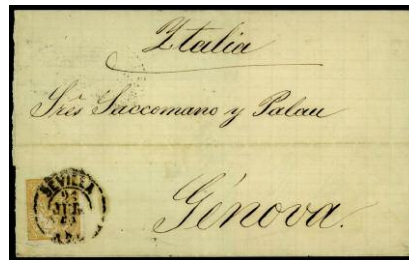 Italia
Srès Saccomano y Palau
Génova.
SEVILLA
21
JUL